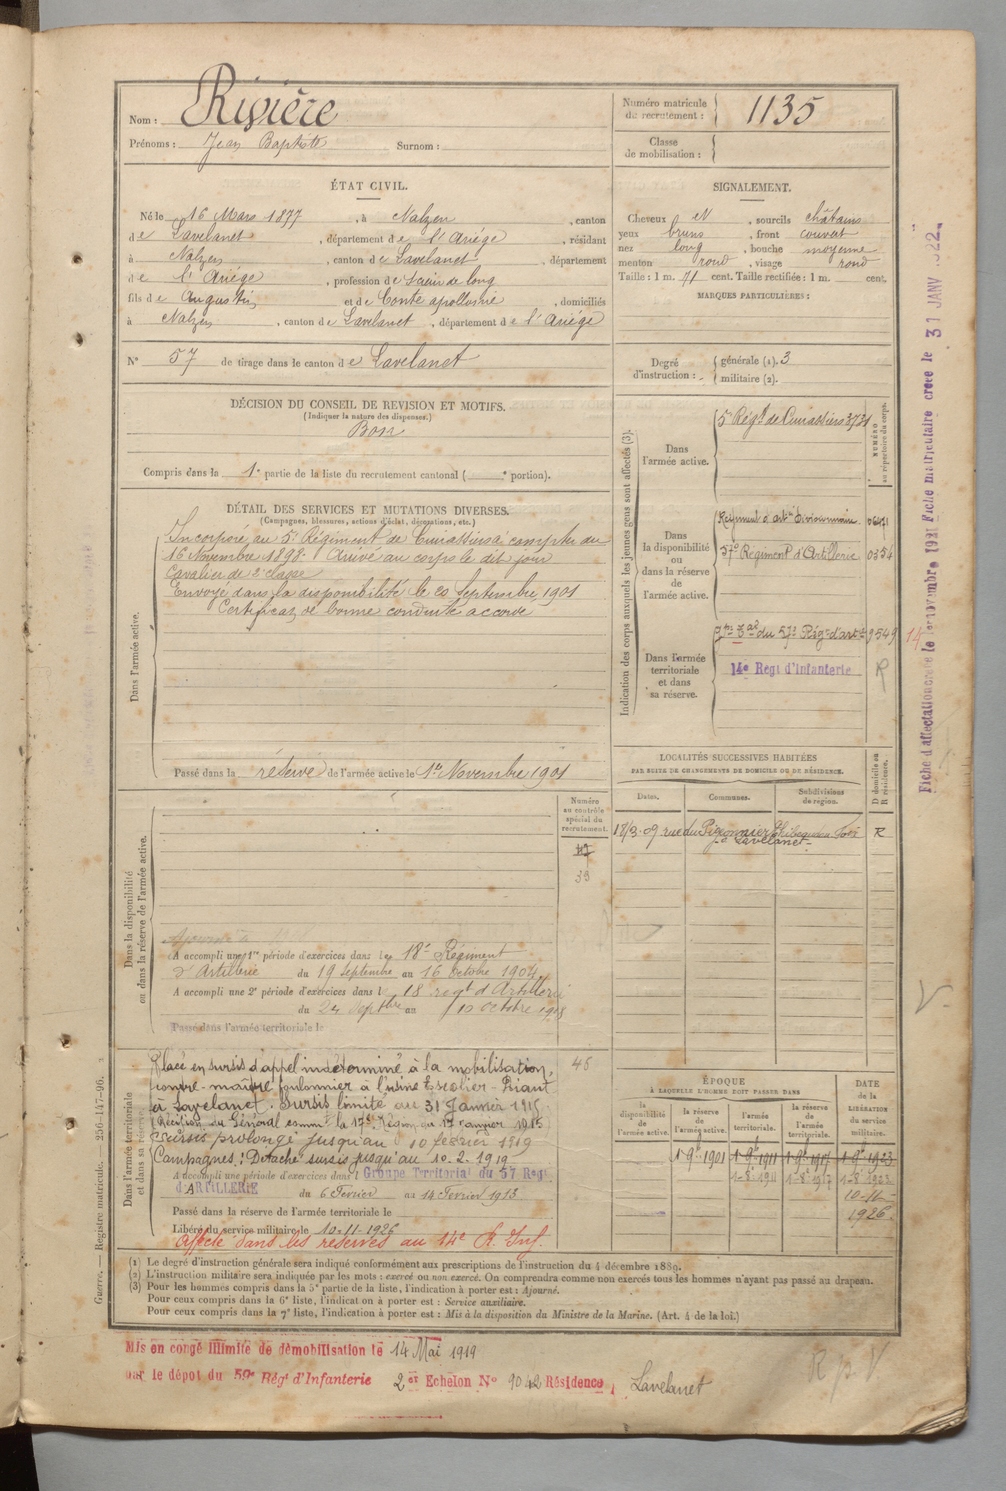 Nom : Rivière
Prénoms : Jean Baptiste Surnom :
Numéro matricule du recrutement : 1135
Classe de mobilisation :
ÉTAT CIVIL.
Né le 16 Mars 1877, à Nalzen, canton
de Lavelanet, département de l'Ariége, résidant
à Nalzen, canton de Lavelanet, département
de l'Ariége, profession de Scieur de long
fils de Augustin et de Conte apollonie, domiciliés
à Nalzen, canton de Lavelanet, département de l'Ariége
N° 57 de tirage dans le canton de Lavelanet
SIGNALEMENT.
Cheveux et, sourcils châtains
yeux bruns, front couvert
nez long, bouche moyenne
menton rond, visage rond
Taille : 1 m. 71 cent. Taille rectifiée : 1 m. cent.
MARQUES PARTICULIÈRES :
Degré d'instruction : générale (1). 3
militaire (2).
DÉCISION DU CONSEIL DE REVISION ET MOTIFS.
(Indiquer la nature des dispenses.)
Bon
Compris dans la 1e partie de la liste du recrutement cantonal ( e portion).
DÉTAIL DES SERVICES ET MUTATIONS DIVERSES.
(Campagnes, blessures, actions d'éclat, décorations, etc.)
Dans l'armée active.
Incorporé au 5e Régiment de Cuirassiers à compter du
16 Novembre 1898. Arrivé au corps le dit jour
Cavalier de 2e classe
Envoyé dans la disponibilité le 20 Septembre 1901
Certificat de bonne conduite accordé
Passé dans la réserve de l'armée active le 1er Novembre 1901
Indication des corps auxquels les jeunes gens sont affectés (3).
NUMÉRO au répertoire du corps.
Dans l'armée active.
5e Régt de Cuirassiers 3731
Dans la disponibilité ou dans la réserve de l'armée active.
Régiment d'artie Divisionnaire
57e Régiment d'Artillerie 0354
Dans l'armée territoriale et dans sa réserve.
du 57e Régt d'artie 9549 14
14e Régt d'Infanterie R
LOCALITÉS SUCCESSIVES HABITÉES
PAR SUITE DE CHANGEMENTS DE DOMICILE OU DE RÉSIDENCE.
Dates. Communes. Subdivisions de région. D domicile ou R résidence.
17/3-09 rue du Pigeonnier R
à Lavelanet
Dans la disponibilité ou dans la réserve de l'armée active.
Numéro au contrôle spécial du recrutement.
33
A accompli une 1re période d'exercices dans le 18e Régiment
d'Artillerie du 19 septembre au 16 octobre 1904
A accompli une 2e période d'exercices dans l 18 regt d'Artillerie
du 24 Septbre au 10 octobre 1908
Passé dans l'armée territoriale le
Dans l'armée territoriale et dans sa réserve.
46
Placé en sursis d'appel indéterminé à la mobilisation,
contre-maître foulonnier à l'usine Escolier-Briand
à Lavelanet. Sursis limité au 31 Janvier 1915
(Décision du Général commt la 17e Région du 17 janvier 1915
Sursis prolongé jusqu'au 10 février 1919
Campagnes : Détaché sursis jusqu'au 10-2-1919
A accompli une période d'exercices dans l Groupe Territorial du 57 Régt
d'ARTILLERIE du 6 Fevrier au 14 Fevrier 1913
Passé dans la réserve de l'armée territoriale le
Libéré du service militaire le 10-11-1926
Affecté dans les réserves au 14e R. Inf.
ÉPOQUE
À LAQUELLE L'HOMME DOIT PASSER DANS
la disponibilité de l'armée active.
la réserve de l'armée active.
l'armée territoriale.
la réserve de l'armée territoriale.
DATE de la LIBÉRATION du service militaire.
1-9b-1901 1-9b-1911 1-9b-1917 1-9b-1923
1-8b-1911 1-8b-1917 1-8b-1923
10-11-1926
(1) Le degré d'instruction générale sera indiqué conformément aux prescriptions de l'instruction du 4 décembre 1889.
(2) L'instruction militaire sera indiquée par les mots : exercé ou non exercé. On comprendra comme non exercés tous les hommes n'ayant pas passé au drapeau.
(3) Pour les hommes compris dans la 5e partie de la liste, l'indication à porter est : Ajourné.
Pour ceux compris dans la 6e liste, l'indication à porter est : Service auxiliaire.
Pour ceux compris dans la 7e liste, l'indication à porter est : Mis à la disposition du Ministre de la Marine. (Art. 4 de la loi.)
Mis en congé illimité de démobilisation le 14 Mai 1919
par le dépot du 59e Régt d'Infanterie 2er Echelon N° 9042 Résidence Lavelanet
R p. V.
Guerre. — Registre matricule. — 256-147-96.
31 JANV 1922